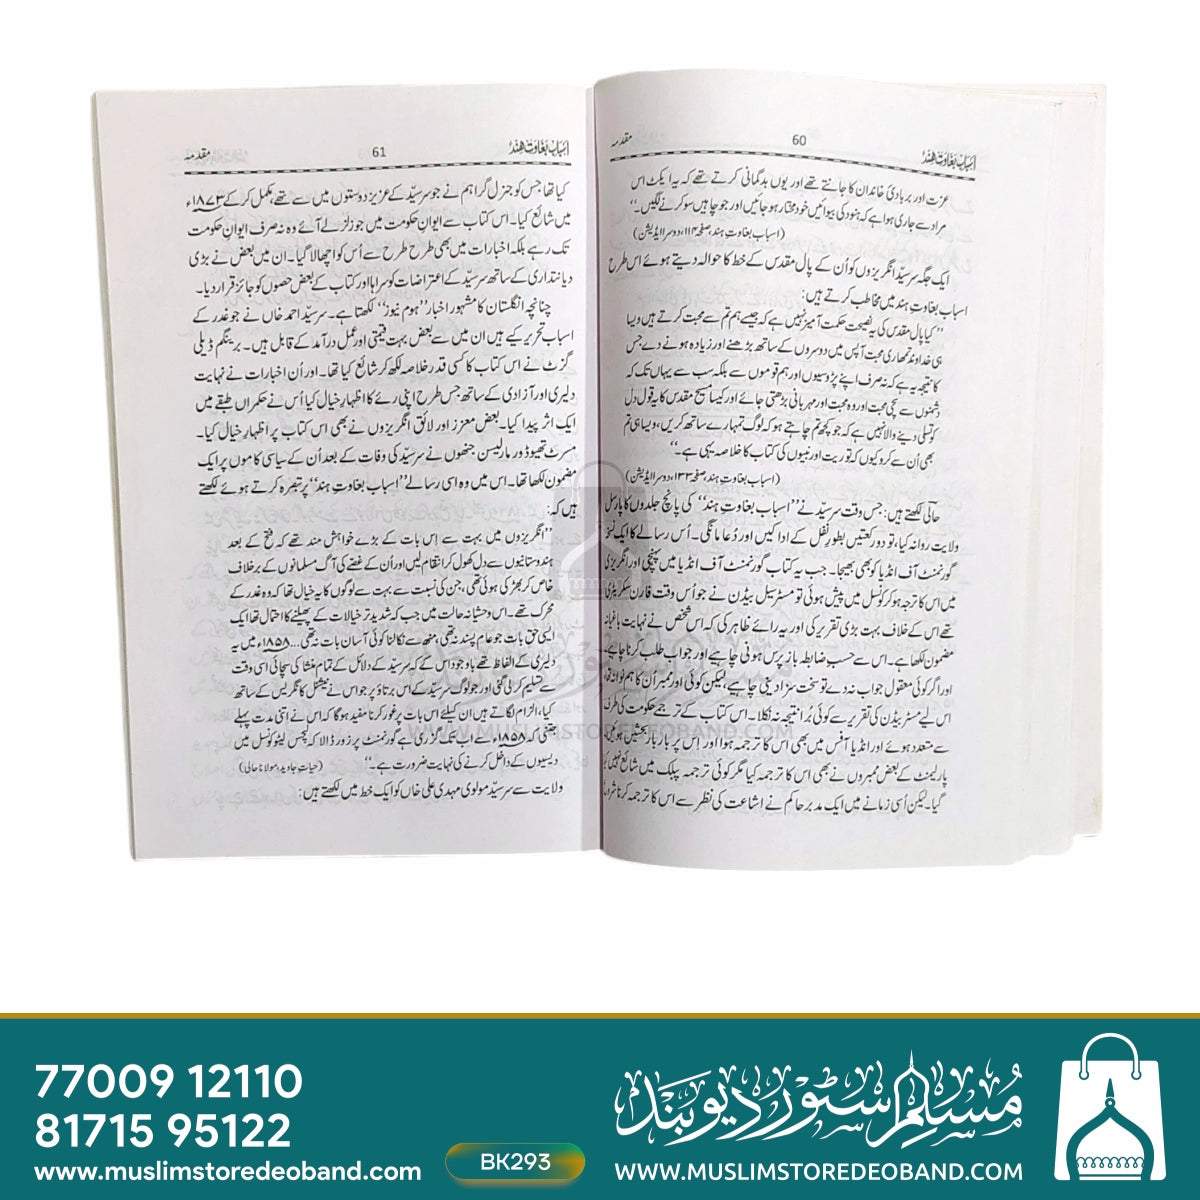 اسباب بغاوت ہند 60 مقدمہ
عزت اور بربادیٔ خاندان کا جانتے تھے اور یوں بدگمانی کرتے تھے کہ یہ ایکٹ اس
مراد سے جاری ہوا ہے کہ ہنود کی بیوائیں خود مختار ہو جائیں اور جو چاہیں سو کرنے لگیں۔‘‘
(اسباب بغاوت ہند، صفحہ ۱۱۴، دوسرا ایڈیشن)
ایک جگہ سرسیّد انگریزوں کو اُن کے پال مقدس کے خط کا حوالہ دیتے ہوئے اس طرح
اسباب بغاوت ہند میں مخاطب کرتے ہیں:
’’کیا پال مقدس کی یہ نصیحت حکمت آمیز نہیں ہے کہ جیسے ہم تم سے محبت کرتے ہیں ویسا
ہی خداوند تمھاری محبت آپس میں دوسروں کے ساتھ بڑھنے اور زیادہ ہونے دے جس
کا نتیجہ یہ ہے کہ نہ صرف اپنے پڑوسیوں اور ہم قوموں سے بلکہ سب سے یہاں تک کہ
دشمنوں سے سچی محبت اور وہ محبت اور مہربانی بڑھتی جائے اور کیا مسیح مقدس کا یہ قول دل
کو تسلی دینے والا نہیں ہے کہ جو کچھ تم چاہتے ہو کہ لوگ تمہارے ساتھ کریں، ویسا ہی تم
بھی اُن سے کرو کیوں کہ توریت اور نبیوں کی کتاب کا خلاصہ یہی ہے۔‘‘
(اسباب بغاوت ہند، صفحہ ۱۳۳، دوسرا ایڈیشن)
حالیؔ لکھتے ہیں: جس وقت سرسیّد نے ’’اسباب بغاوت ہند‘‘ کی پانچ جلدوں کا پارسل
ولایت روانہ کیا، تو دو رکعتیں بطورِ نفل کے ادا کیں اور دُعا مانگی۔ اُس رسالے کا ایک نسخہ
گورنمنٹ آف انڈیا کو بھی بھیجا۔ جب یہ کتاب گورنمنٹ آف انڈیا میں پہنچی اور انگریزی
میں اس کا ترجمہ ہو کر کونسل میں پیش ہوئی تو مسٹر سیسل بیڈن نے جو اُس وقت فارن سکریٹری
تھے اس کے خلاف بہت بڑی تقریر کی اور یہ رائے ظاہر کی کہ اس شخص نے نہایت باغیانہ
مضمون لکھا ہے۔ اس سے حسب ضابطہ باز پرس ہونی چاہیے اور جواب طلب کرنا چاہیے
اور اگر کوئی معقول جواب نہ دے تو سخت سزا دینی چاہیے، لیکن کوئی اور ممبر اُن کا ہم نوا نہ تھا
اس لیے مسٹر بیڈن کی تقریر سے کوئی بُرا نتیجہ نہ نکلا۔ اس کتاب کے ترجمے حکومت کی طرف
سے متعدد ہوئے اور انڈیا آفس میں بھی اس کا ترجمہ ہوا اور اِس پر بار بار بحثیں ہوئیں،
پارلیمنٹ کے بعض ممبروں نے بھی اس کا ترجمہ کیا مگر کوئی ترجمہ پبلک میں شائع نہیں کیا
گیا۔ لیکن اُسی زمانے میں ایک مدبر حاکم نے اِشاعت کی نظر سے اس کا ترجمہ کرنا شروع
اسباب بغاوت ہند 61 مقدمہ
کیا تھا جس کو جنرل گراہم نے جو سرسیّد کے عزیز دوستوں میں سے تھے، مکمل کر کے ۱۸۷۳ء
میں شائع کیا۔ اس کتاب سے ایوانِ حکومت میں جو زلزلے آئے وہ نہ صرف ایوانِ حکومت
تک رہے بلکہ اخبارات میں بھی طرح طرح سے اُس کو اچھالا گیا۔ ان میں بعض نے بڑی
دیانتداری کے ساتھ سرسیّد کے اعتراضات کو سراہا اور کتاب کے بعض حصوں کو جائز قرار دیا۔
چنانچہ انگلستان کا مشہور اخبار ’’ہوم نیوز‘‘ لکھتا ہے۔ سرسیّد احمد خاں نے جو غدر کے
اسباب تحریر کیے ہیں ان میں سے بعض بہت قیمتی اور عمل درآمد کے قابل ہیں۔ برمنگھم ڈیلی
گزٹ نے اس کتاب کا کسی قدر خلاصہ لکھ کر شائع کیا تھا۔ اور اُن اخبارات نے نہایت
دلیری اور آزادی کے ساتھ جس طرح اپنی رائے کا اظہارِ خیال کیا اُس نے حکمراں طبقے میں
ایک اثر پیدا کیا۔ بعض معزز اور لائق انگریزوں نے بھی اس کتاب پر اظہارِ خیال کیا۔
مسرٹ تھیوڈور ماریسن جنھوں نے سرسیّد کی وفات کے بعد اُن کے سیاسی کاموں پر ایک
مضمون لکھا تھا۔ اس میں وہ اسی رسالے ’’اسباب بغاوت ہند‘‘ پر تبصرہ کرتے ہوئے لکھتے
ہیں کہ:
’’انگریزوں میں بہت سے اِس بات کے بڑے خواہش مند تھے کہ فتح کے بعد
ہندوستانیوں سے دل کھول کر انتقام لیں اور اُن کے غصّے کی آگ مسلمانوں کے برخلاف
خاص کر بھڑکی ہوئی تھی، جن کی نسبت سے بہت سے لوگوں کا یہ خیال تھا کہ وہ غدر کے
محرک تھے۔ اس وحشیانہ حالت میں جب کہ شدید تر خیالات کے پھیلنے کا احتمال تھا ایک
ایسی حق بات جو عام پسند نہ تھی، منھ سے نکالنا کوئی آسان بات نہ تھی... ۱۸۵۸ء میں یہ
دلیری کے الفاظ تھے باوجود اس کے کہ سرسیّد کے دلائل کے تمام منشا کی سچائی اسی وقت
سے تسلیم کر لی گئی اور جو لوگ سرسیّد کے اس برتاؤ پر جو اس نے نیشنل کانگریس کے ساتھ
کیا، الزام لگاتے ہیں ان کیلئے اس بات پر غور کرنا مفید ہوگا کہ اس نے اتنی مدت پہلے
جتنی کہ ۱۸۵۸ء سے اب تک گزری ہے گورنمنٹ پر زور ڈالا کہ لیجس لیٹو کونسل میں
دیسیوں کے داخل کرنے کی نہایت ضرورت ہے۔‘‘ (حیات جاوید مولانا حالی)
ولایت سے سرسیّد مولوی مہدی علی خاں کو ایک خط میں لکھتے ہیں:
مسلم سٹور دیوبند
WWW.MUSLIMSTOREDEOBAND.COM
77009 12110
81715 95122
www.muslimstoredeoband.com
BK293
مسلم سٹور دیوبند
WWW.MUSLIMSTOREDEOBAND.COM